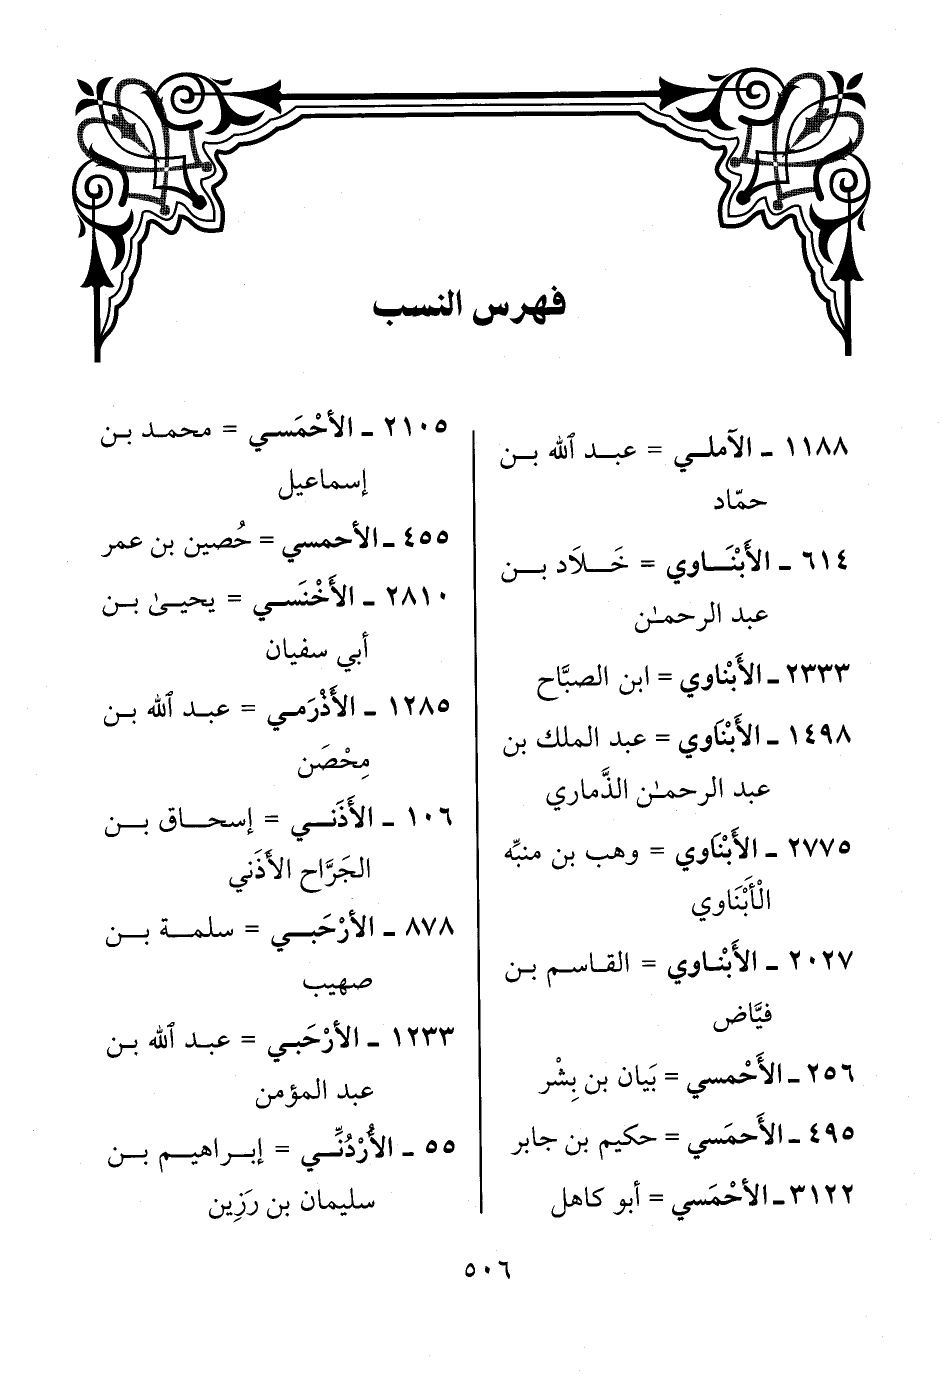 فهرس النسب
١١٨٨ ـ الآملـي = عبـد الله بـن
حمّاد
٦١٤ ـ الأَبْنَـاوي = خَـلاَد بـن
عبد الرحمـٰن
٢٣٣٣ ـ الأَبْناوي = ابن الصبَّاح
١٤٩٨ ـ الأَبْنَاوي = عبد الملك بن
عبد الرحمـٰن الذَّماري
٢٧٧٥ ـ الأَبْنَاوي = وهب بن منبِّه
الْأَبْنَاوي
٢٠٢٧ ـ الأَبْنـاوي = القـاسـم بـن
فيَّاض
٢٥٦ ـ الأَحْمسي = بَيان بن بِشْر
٤٩٥ ـ الأَحمَسي = حكيم بن جابر
٣١٢٢ ـ الأحْمَسي = أبو كاهل
٢١٠٥ ـ الأحْمَسـي = محمـد بـن
إسماعيل
٤٥٥ ـ الأحمسي = حُصين بن عمر
٢٨١٠ ـ الأَخْنَسـي = يحيـىٰ بـن
أبي سفيان
١٢٨٥ ـ الأَذْرَمـي = عبـد الله بـن
مِحْصَن
١٠٦ ـ الأَذَنـي = إسحـاق بـن
الجَرَّاح الأَذَني
٨٧٨ ـ الأرْحَبـي = سلمـة بـن
صهيب
١٢٣٣ ـ الأرْحَبـي = عبـد الله بـن
عبد المؤمن
٥٥ ـ الأُرْدُنِّـي = إبـراهيـم بـن
سليمان بن رَزِين
٥٠٦